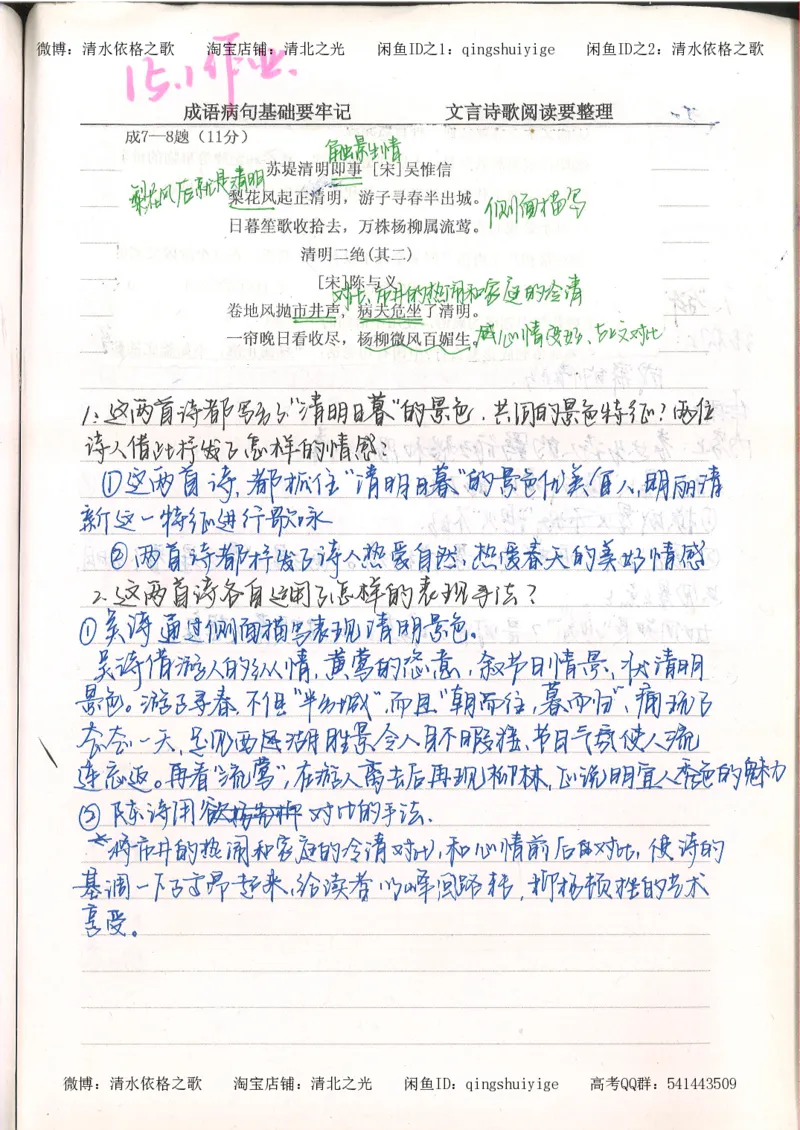 微博：清水依格之歌 淘宝店铺：清北之光 闲鱼ID之1：qingshuiyige 闲鱼ID之2：清水依格之歌
15.1作业.
成语病句基础要牢记 文言诗歌阅读要整理
成7—8题（11分）
触景生情
苏堤清明即事 [宋]吴惟信
梨花风后就是清明
梨花风起正清明，游子寻春半出城。
侧面描写
日暮笙歌收拾去，万株杨柳属流莺。
清明二绝(其二)
[宋]陈与义
对比，市井的热闹和家庭的冷清
卷地风抛市井声，病夫危坐了清明。
一帘晚日看收尽，杨柳微风百媚生。
心情变好，与上文对比
1.这两首诗都写到了"清明日暮"的景色，共同的景色特征？两位
诗人借此抒发了怎样的情感？
①这两首诗，都抓住"清明日暮"的景色优美宜人，明丽清
新这一特征进行歌咏
②两首诗都抒发了诗人热爱自然，热爱春天的美好情感
2.这两首诗各自运用了怎样的表现手法？
①吴诗通过侧面描写表现清明景色。
吴诗借游人的纵情，黄莺的恣意，叙节日情景，状清明
景色。游子寻春，不但"半出城"，而且"朝而往，暮而归"，痛玩了
整整一天，足见西湖胜景令人目不暇接，节日气氛使人流
连忘返。再看"流莺"，在游人离去后再现柳林，正说明宜人秀色的魅力
②陈诗用对比的手法.
将市井的热闹和家庭的冷清对比，和心情前后的对比，使诗的
基调一下子高昂起来，给读者以峰回路转，抑扬顿挫的艺术
享受。
微博：清水依格之歌 淘宝店铺：清北之光 闲鱼ID：qingshuiyige 高考QQ群：541443509